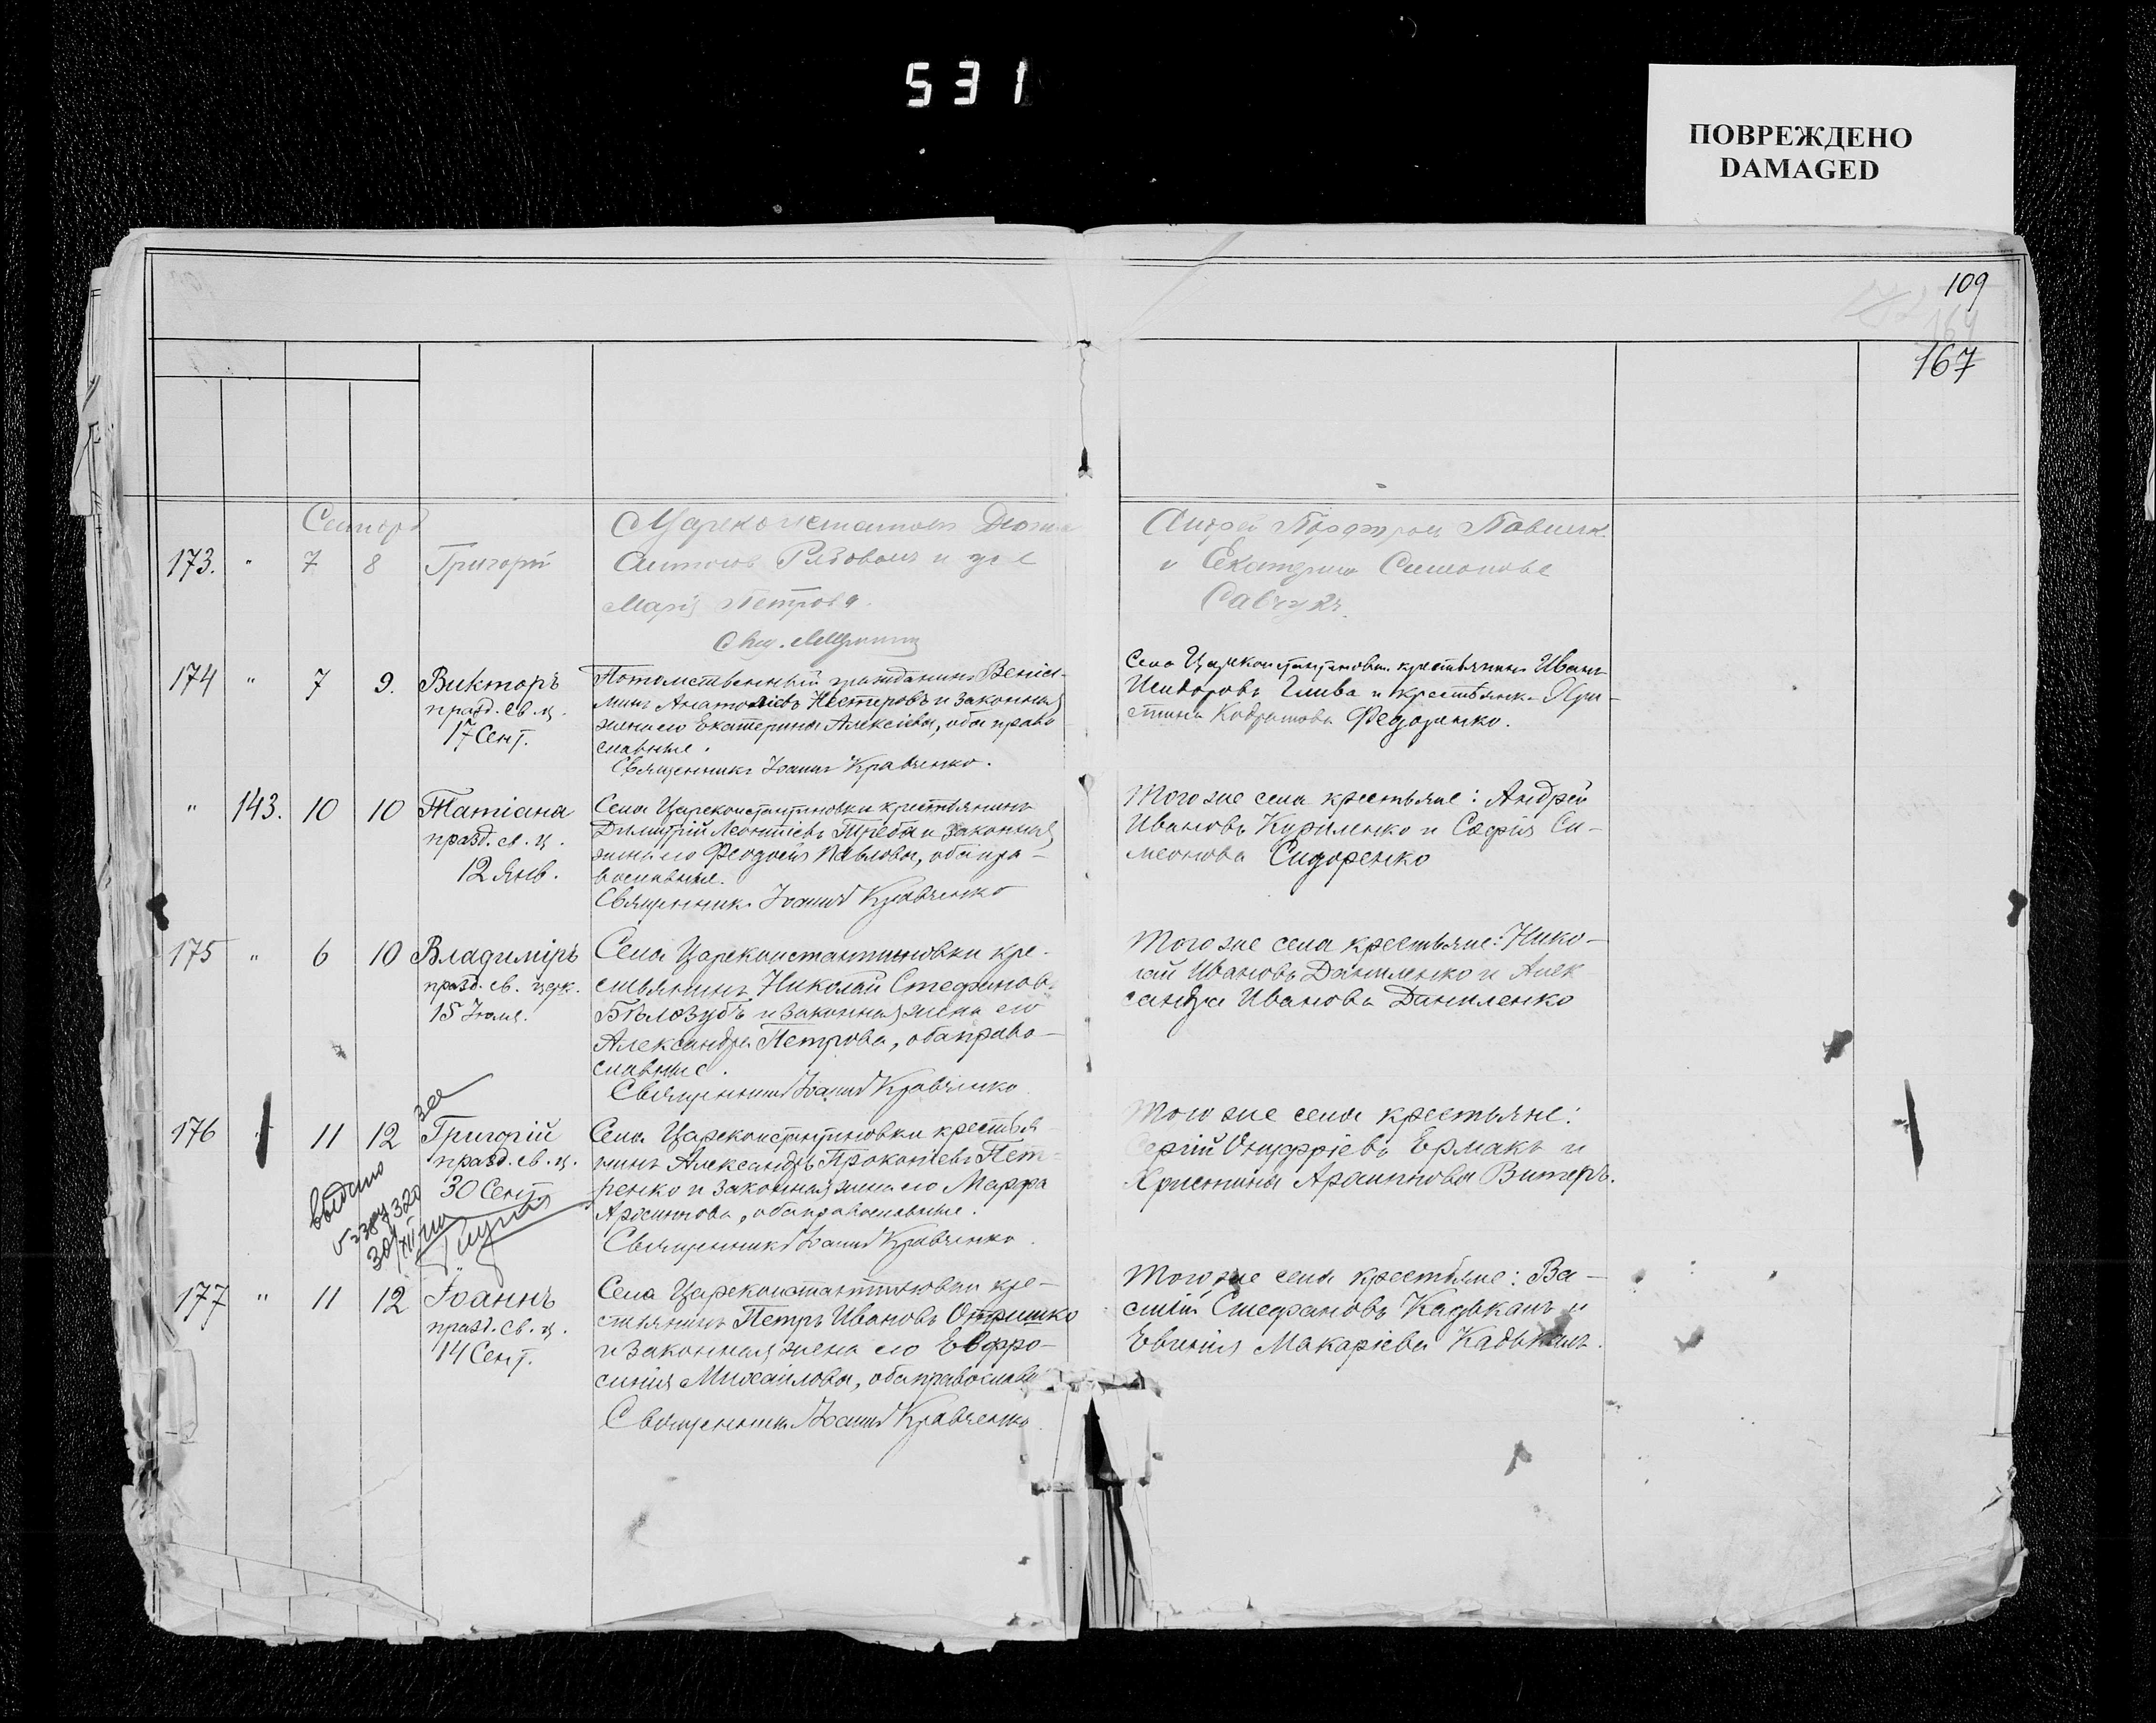 531
ПОВРЕЖДЕНО
DAMAGED
109
167
173. " 7 8 Григорій
Антоновъ и
Марія Петрова.
и Екатерина Симонова
174 " 7 9. Викторъ
празд. св. ц.
17 Сент.
Потомственный гражданинъ Веніа-
минъ Анатоліевъ Нестеровъ и законная
жена его Екатерина Алексіева, оба право
славные.
Священникъ Іоаннъ Кравченко.
Села Цареконстантиновки крестьянинъ Иванъ
Исидоровъ Глива и крестьянка Хри-
стина Кодратова Федоренко.
" 143. 10 10 Татіана
празд. св. ц.
12 Янв.
Села Цареконстантиновки крестьянинъ
Димитрій Леонтіевъ Треба и законная
жена его Феодосія Павлова, оба пра-
вославные.
Священникъ Іоаннъ Кравченко
Того же села крестьяне: Андрей
Ивановъ Куриленко и Софія Си-
меонова Сидоренко
175 " 6 10 Владиміръ
празд. св. церк.
15 Іюля.
Села Цареконстантиновки кре-
стьянинъ Николай Стефановъ
Бѣлозубъ и законная жена его
Александра Петрова, оба право-
славные.
Священникъ Іоаннъ Кравченко
Того же села крестьяне: Нико-
лай Ивановъ Даниленко и Алек
сандра Иванова Даниленко
176 " 11 12 Григорій
празд. св. ц.
30 Сент.
выдано
Села Цареконстантиновки крестья
нинъ Александръ Прокопіевъ Пет-
ренко и законная жена его Марфа
оба православные.
Священникъ Іоаннъ Кравченко
Того же села крестьяне:
Сергій Онуфріевъ Ермакъ и
Христина Витеръ.
177 " 11 12 Іоаннъ
празд. св. ц.
14 Сент.
Села Цареконстантиновки кре-
стьянинъ Петръ Ивановъ Отришко
и законная жена его Евфро-
синія Михаилова, оба православ
Священникъ Іоаннъ Кравченко
Того же села крестьяне: Ва-
силій Стефановъ Кадькалъ и
Евгенія Макаріева Кадькалъ.